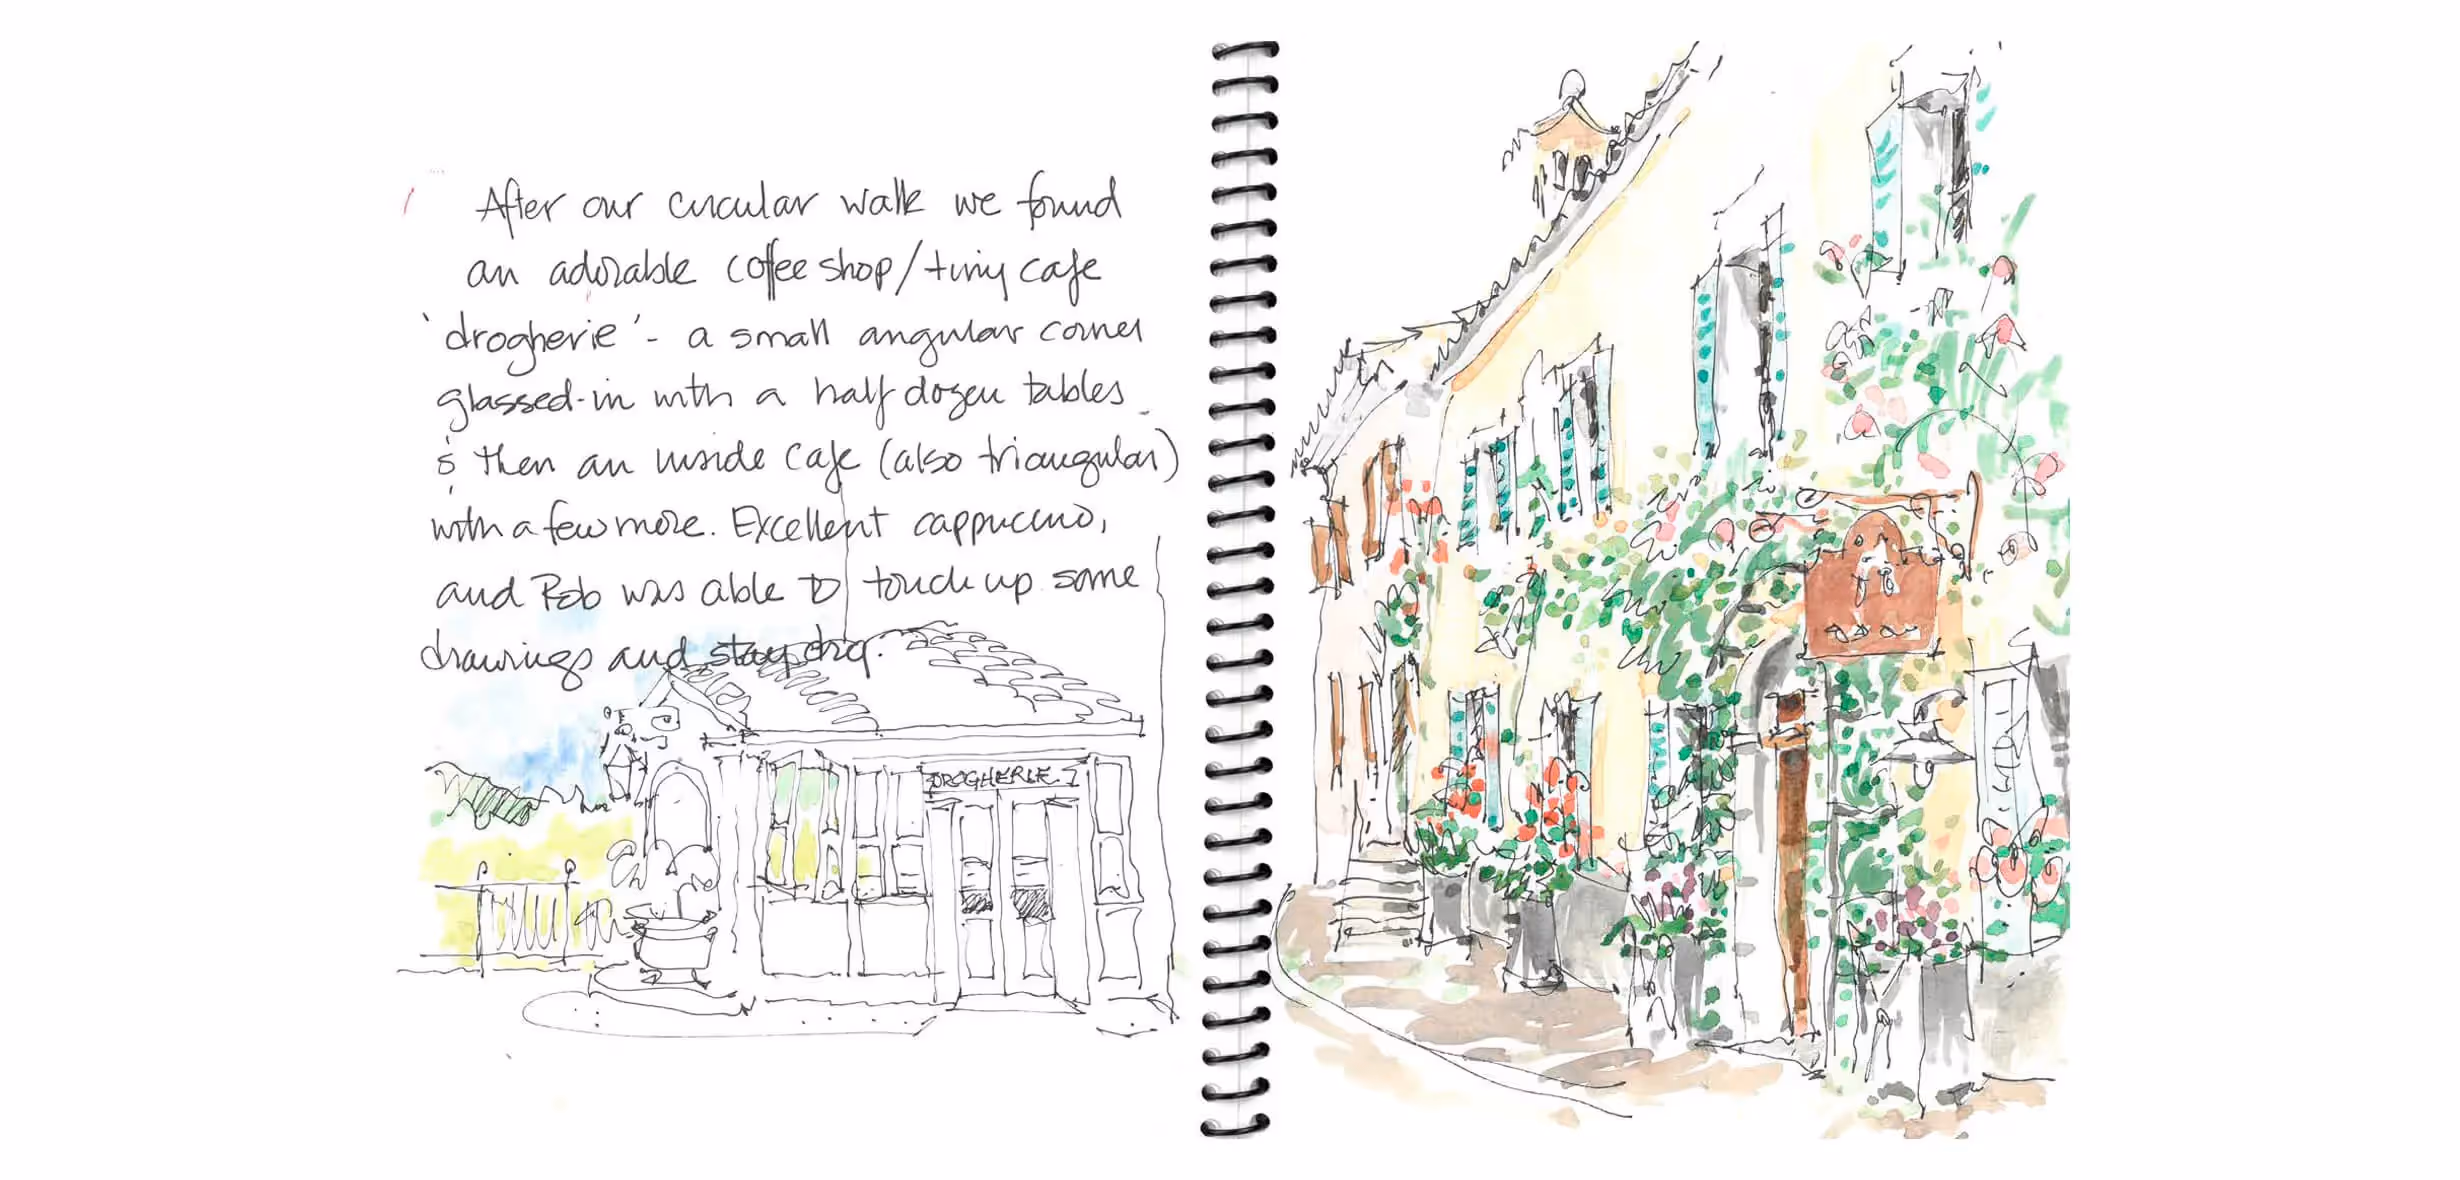 After our circular walk we found
an adorable coffee shop/tiny cafe
'drogherie' - a small angular corner
glassed-in with a half dozen tables
& then an inside cafe (also triangular)
with a few more. Excellent cappuccino,
and Rob was able to touch up some
drawings and stay dry.
DROGHERIE